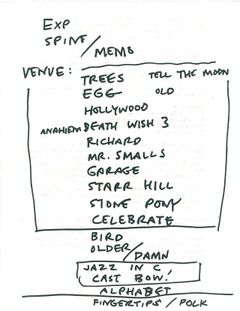 EXP
SPINE / MEMO
VENUE:
TREES TELL THE MOON
EGG OLD
HOLLYWOOD
ANAHIEM DEATH WISH 3
RICHARD
MR. SMALLS
GARAGE
STARR HILL
STONE PONY
CELEBRATE
BIRD
OLDER / DAMN
JAZZ IN C
CAST BOW!
ALPHABET
FINGERTIPS / POLK